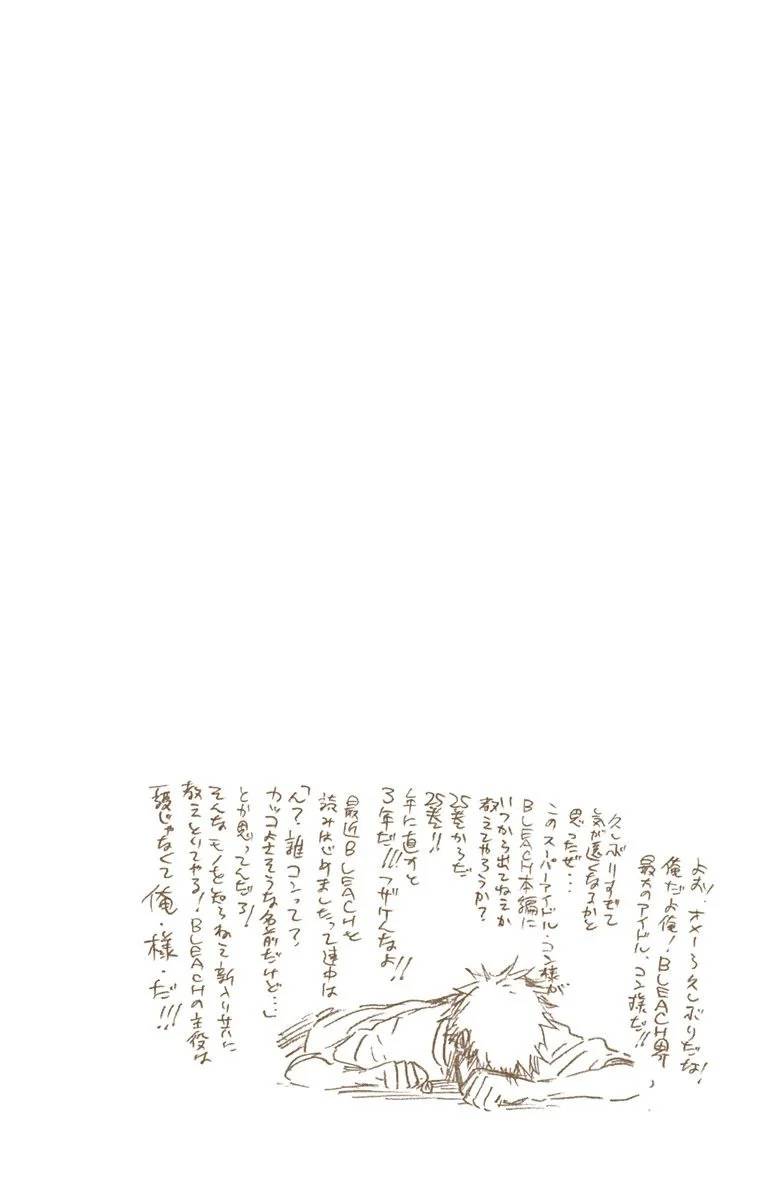 よお!オメーら久しぶりだな!
俺だよ俺!BLEACH界
最大のアイドル、コン様だ!!
久しぶりすぎて
気が遠くなるかと
思ったぜ…
このスーパーアイドル・コン様が
BLEACH本編に
いつから出てねえか
教えてやろうか?
25巻からだ
25巻!!
年に直すと
3年だ!!!フザケんなよ!!
最近BLEACHを
読みはじめましたって連中は
「んで、誰コンって?
カッコよさそうな名前だけど…」
とか思ってんだろ!
そんなモノを知らねえ新入り共に
教えといてやる!BLEACHの主役は
一護じゃなくて俺・様・だ!!!